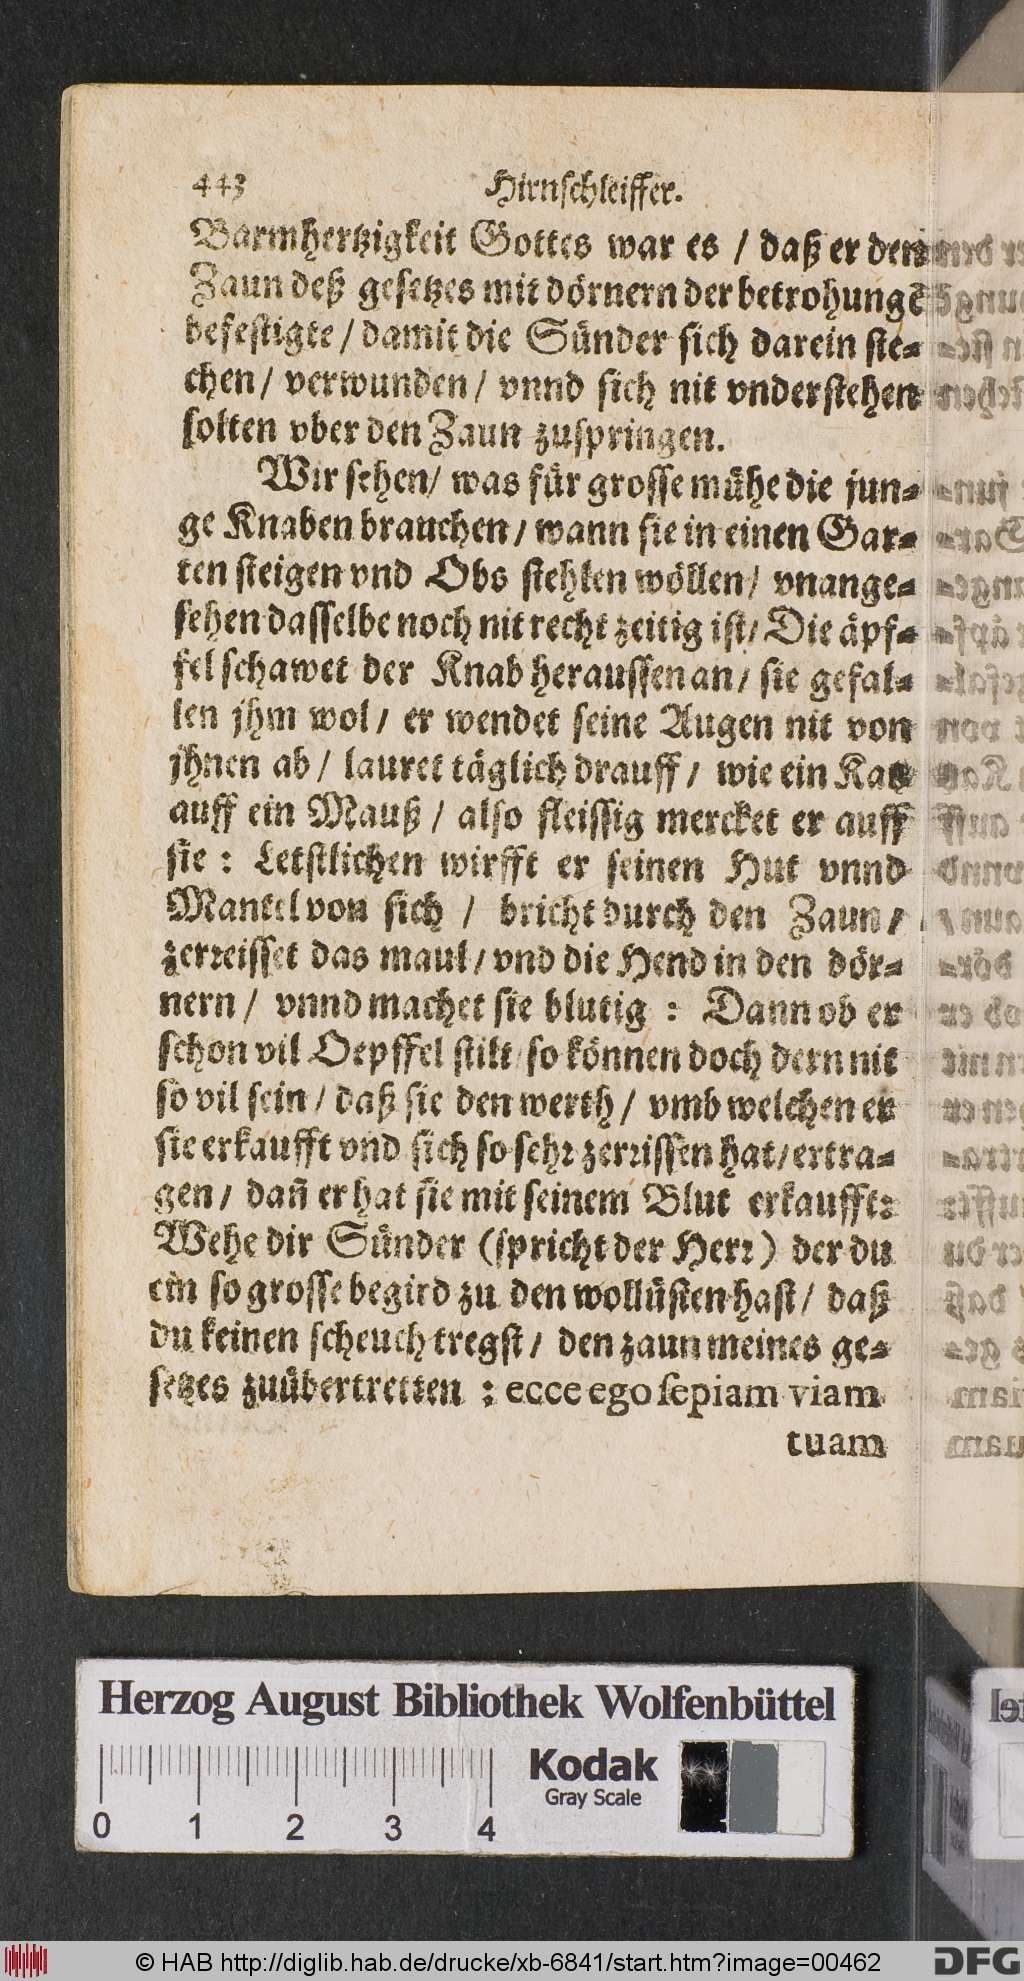 443 Hirnschleiffer.
Barmhertzigkeit Gottes war es / daß er den
Zaun deß gesetzes mit dörnern der betrohungē
befestigte / damit die Sünder sich darein ste-
chen / verwunden / vnnd sich nit vnderstehen
solten vber den Zaun zuspringen.
Wir sehen / was für grosse mühe die jun-
ge Knaben brauchen / wann sie in einen Gar-
ten steigen vnd Obs stehlen wöllen / vnange-
sehen dasselbe noch nit recht zeitig ist / Die äpf-
fel schawet der Knab heraussen an / sie gefal-
len jhm wol / er wendet seine Augen nit von
jhnen ab / lauret täglich drauff / wie ein Katz
auff ein Mauß / also fleissig mercket er auff
sie : Letstlichen wirfft er seinen Hut vnnd
Mantel von sich / bricht durch den Zaun /
zerreisset das maul / vnd die Hend in den dör-
nern / vnnd machet sie blutig : Dann ob er
schon vil Oepffel stilt / so können doch dern nit
so vil sein / daß sie den werth / vmb welchen er
sie erkaufft vnd sich so sehr zerrissen hat / ertra-
gen / dañ er hat sie mit seinem Blut erkaufft:
Wehe dir Sünder (spricht der Herr) der du
ein so grosse begird zu den wollüsten hast / daß
du keinen scheuch tregst / den zaun meines ge-
setzes zuübertretten : ecce ego sepiam viam
tuam
Herzog August Bibliothek Wolfenbüttel
Kodak
Gray Scale
0 1 2 3 4
© HAB http://diglib.hab.de/drucke/xb-6841/start.htm?image=00462
DFG